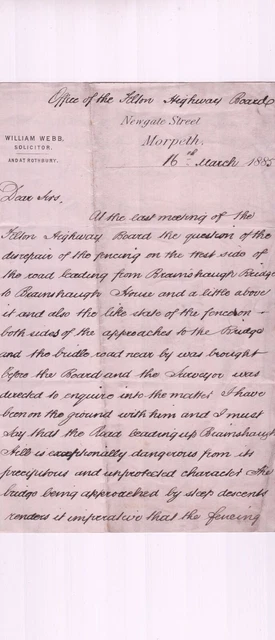 Office of the Felton Highway Board
Newgate Street
WILLIAM WEBB,
SOLICITOR.
AND AT ROTHBURY.
Morpeth.
16th March 1885
Dear Sirs,
At the last meeting of the
Felton Highway Board the question of the
disrepair of the fencing on the West side of
the road leading from Brainshaugh Bridge
to Brainshaugh House and a little above
it and also the like state of the fences on
both sides of the approaches to the Bridge
and the bridle road near by was brought
before the Board and the Surveyor was
directed to enquire into the matter. I have
been on the ground with him and I must
say that the Road leading up Brainshaugh
Hill is exceptionally dangerous from its
precipitous and unprotected character. The
bridge being approached by steep descents
renders it imperative that the fencing